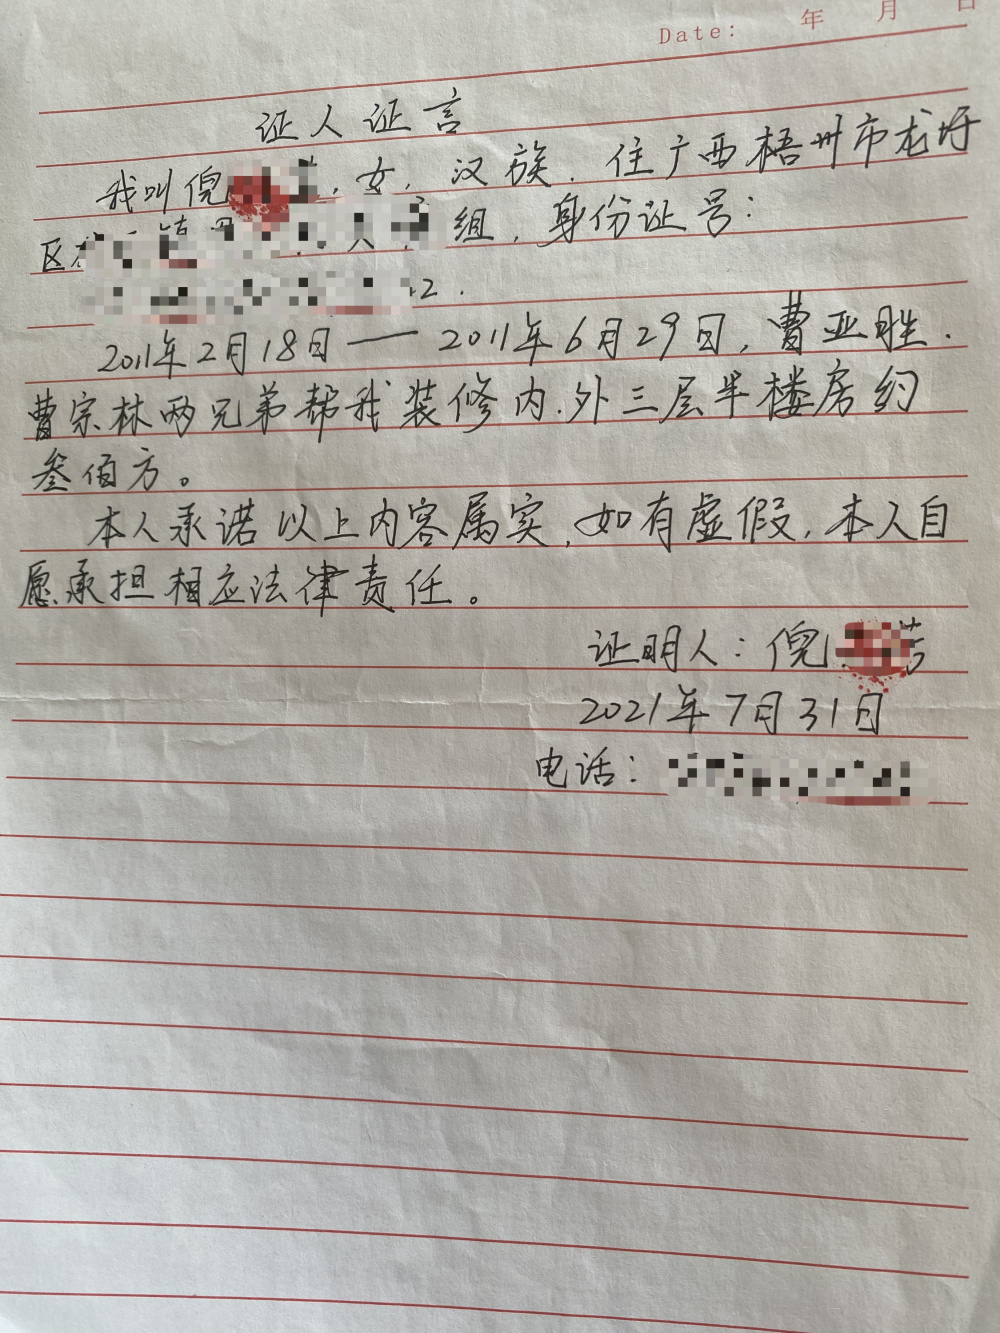 Date: 年 月 日
证人证言
我叫倪 ,女,汉族.住广西梧州市龙圩
区 组,身份证号:
2.
2011年2月18日——2011年6月29日,曹亚胜.
曹宗林两兄弟帮我装修内.外三层半楼房约
叁佰方。
本人承诺以上内容属实,如有虚假,本人自
愿承担相应法律责任。
证明人:倪
2021年7月31日
电话: